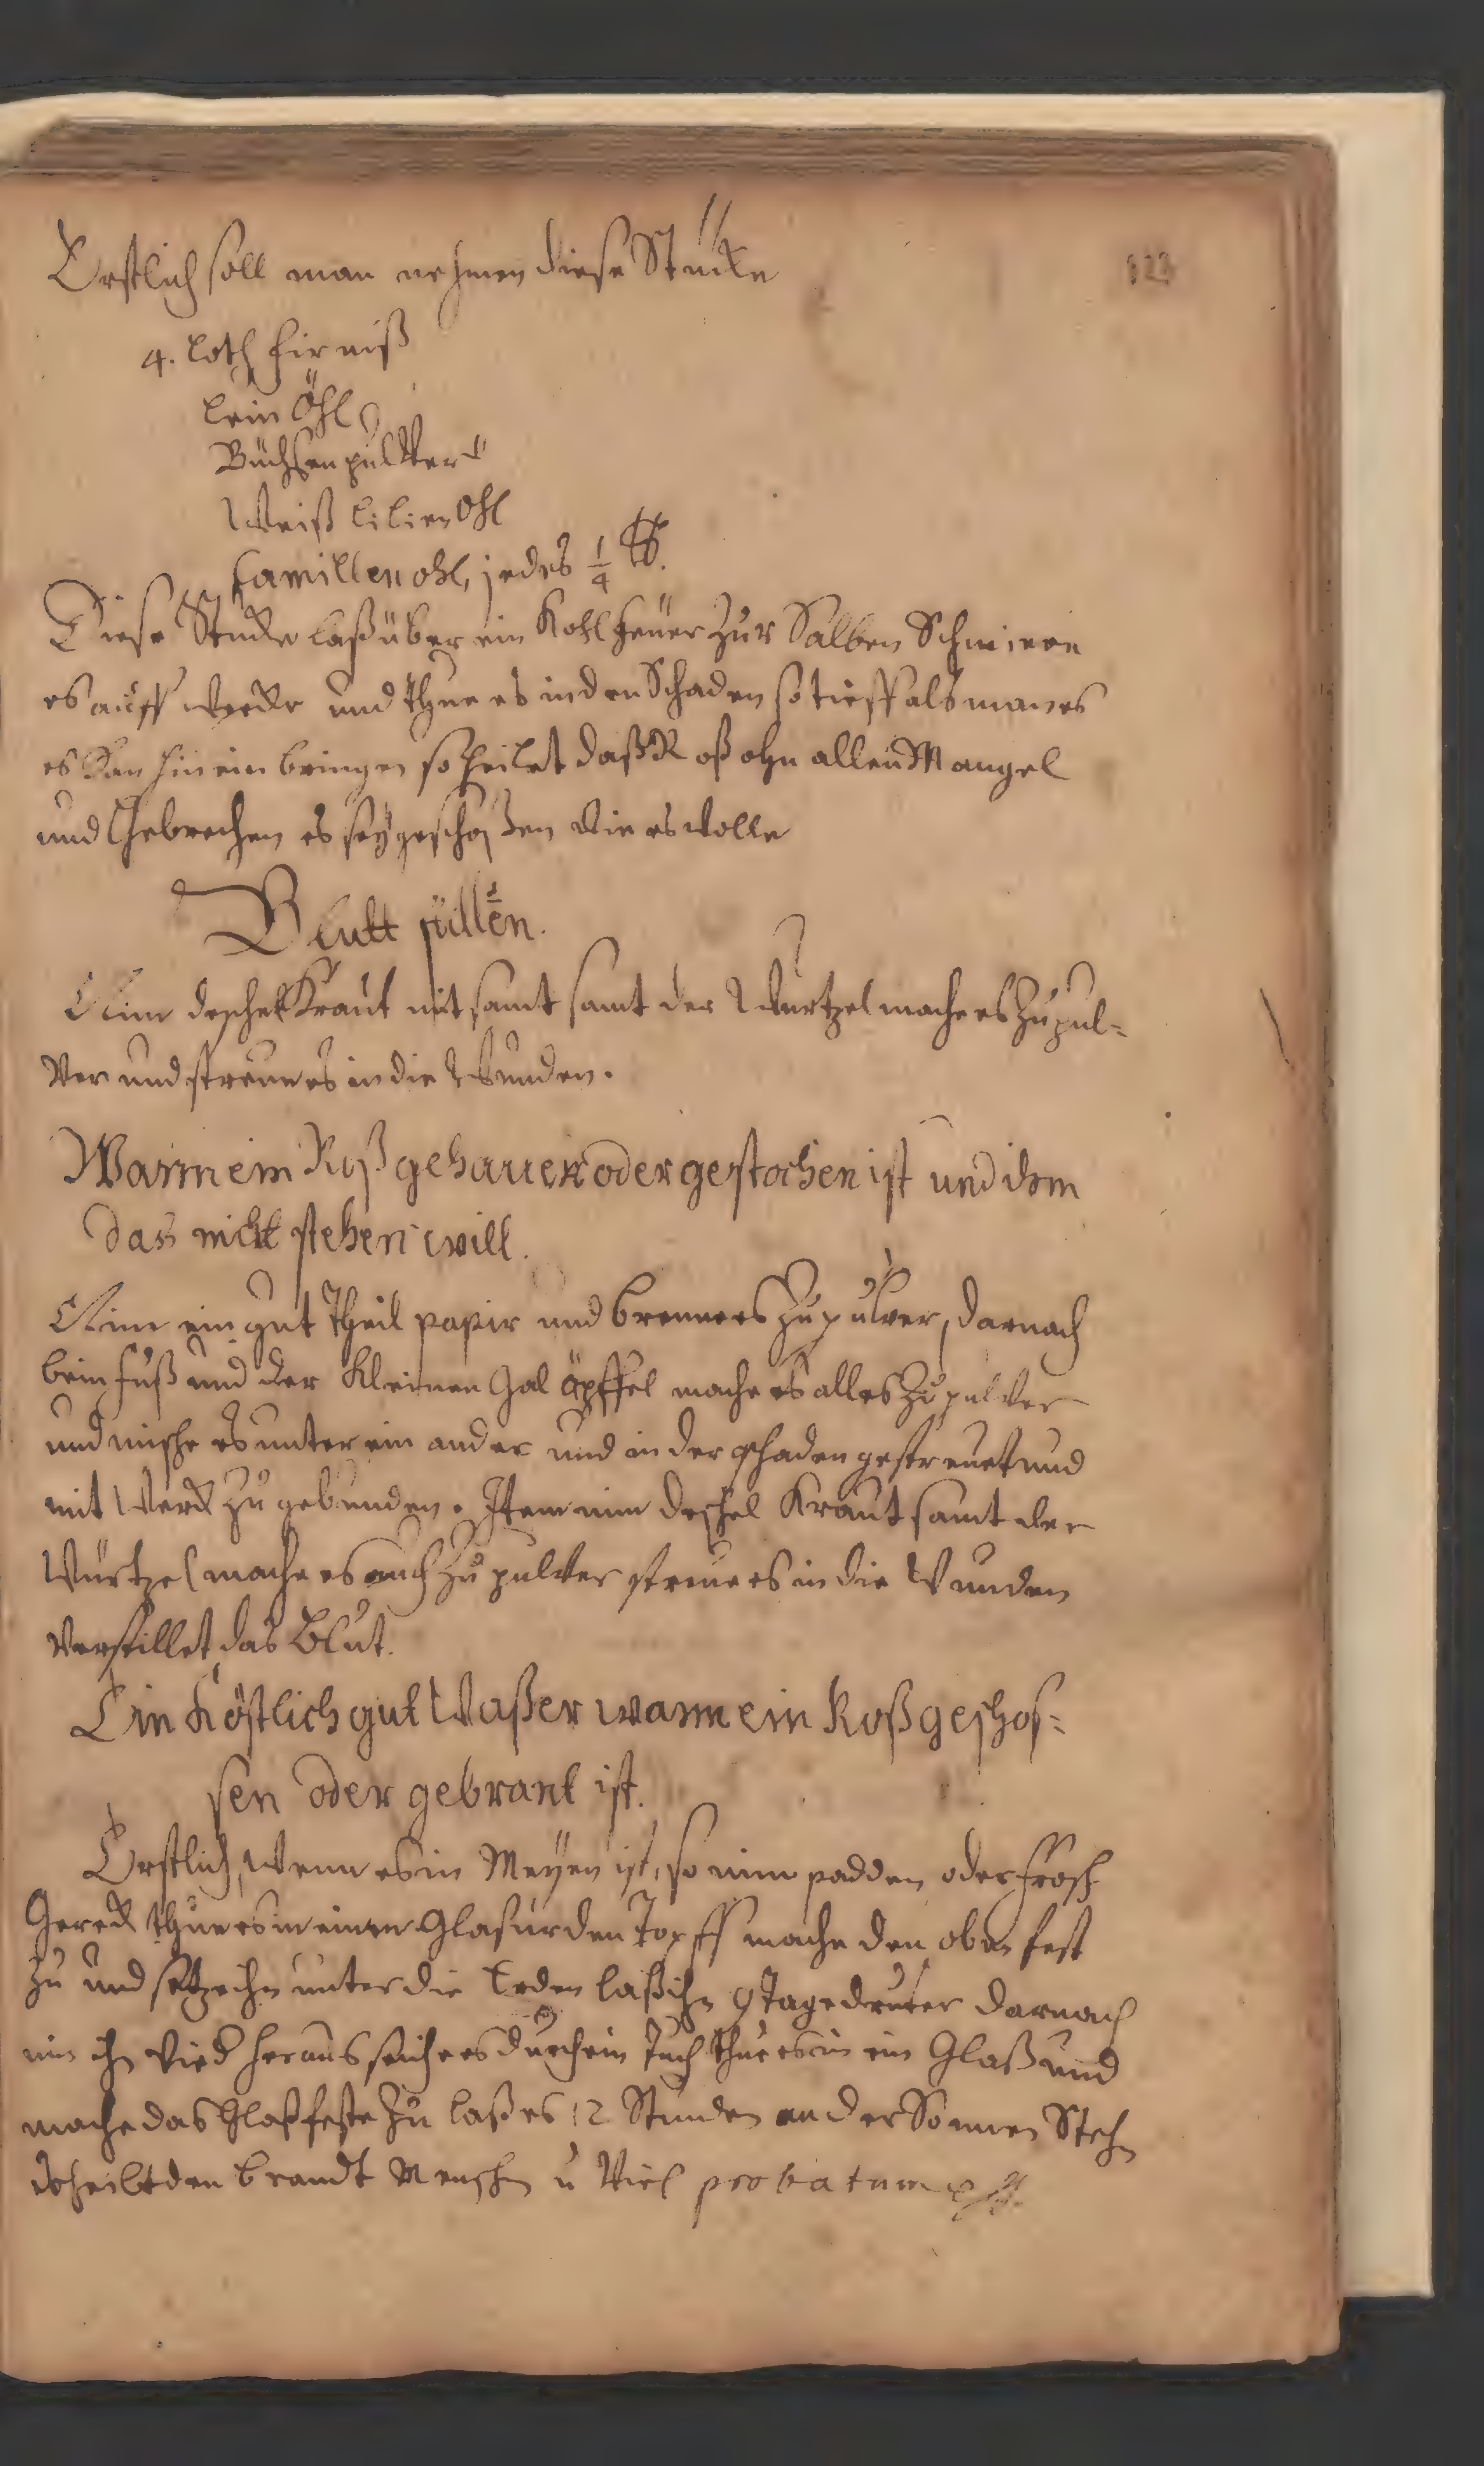 123
Erstlich soll man nehmen diese Stücke
4. loth firniß
lein Öhl
Büchsenpulver
Weiß lilien Ohl
Camillen ohl, jedes 1/4 ℔.
Diese Stücke laß über ein Kohlfeüer zur Salben Schmiren
es auff Werck und thue es in den Schaden so tieff als man es
es kan hinein bringen so heilet daß Roß ohn allen Mangel
und Gebrechen es seÿ geschoßen wie es wolle
Blutt stillen.
Nim deschelkraut mit samt samt der Wurtzel mache es Zu pul-
ver und streue es in die Wunden.
Wann ein Roß gehauen oder gestochen ist und ihm
das nicht stehen will.
Nim ein gut Theil papir und brenne es Zu pulver, darnach
beinfuß und der Kleinen Galöpffel mache es alles Zu pulver
und mische es unter ein ander und in der schaden gestreuet und
mit Werck zu gebunden. Item nim deschel Kraut samt der
Würtzel mache es auch zu pulver streue es in die Wunden
verstillet das Blut.
Ein Köstlich gut Waßer wann ein Roß geschos-
sen oder gebrant ist.
Erstlich, Wenn es in Meÿen ist, so nim padden oder frosch
Gereck thue es in einen Glasurden Topff mache den oben fest
zu und setze ihn unter die Erden laß ihn 9 Tage drunter darnach
nim ihn wied heraus seihe es durch ein Tuch thue es in ein Glaß und
mache das Glaß feste zu laß es 12 Stunden an der Sonnen Stehn
es heilt den brandt Menschen u Viel probatum